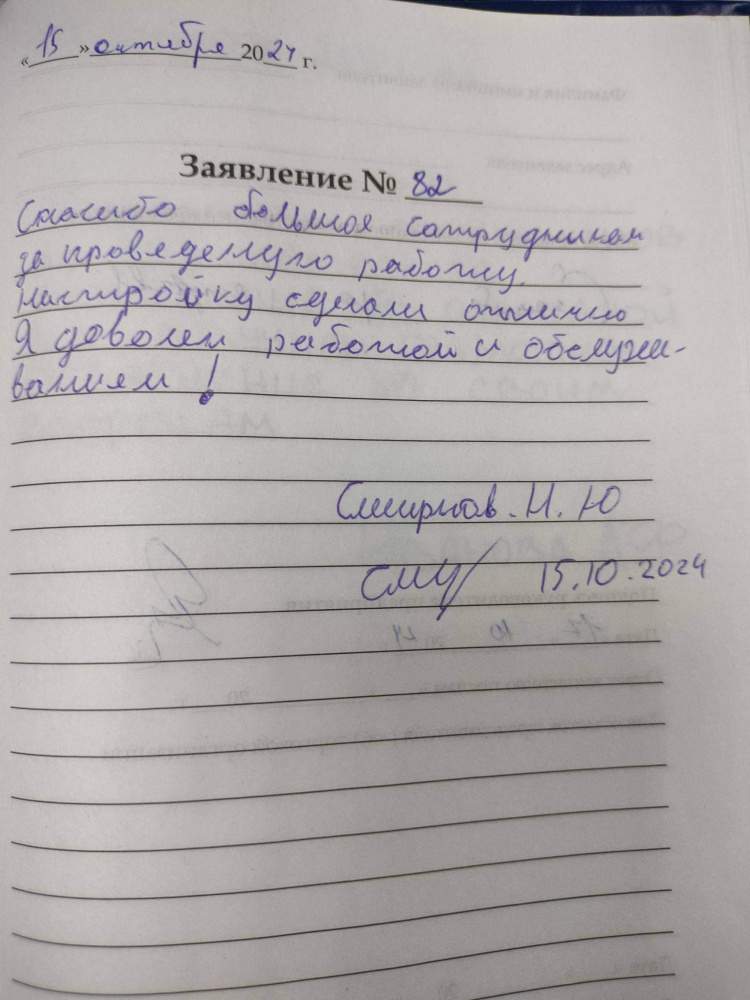 «15» октября 2024 г.
Заявление № 82
Спасибо большое сотрудникам
за проведенную работу.
Настройку сделали отлично
Я доволен работой и обслужи-
ванием!
Смирнов. Н. Ю
15.10.2024